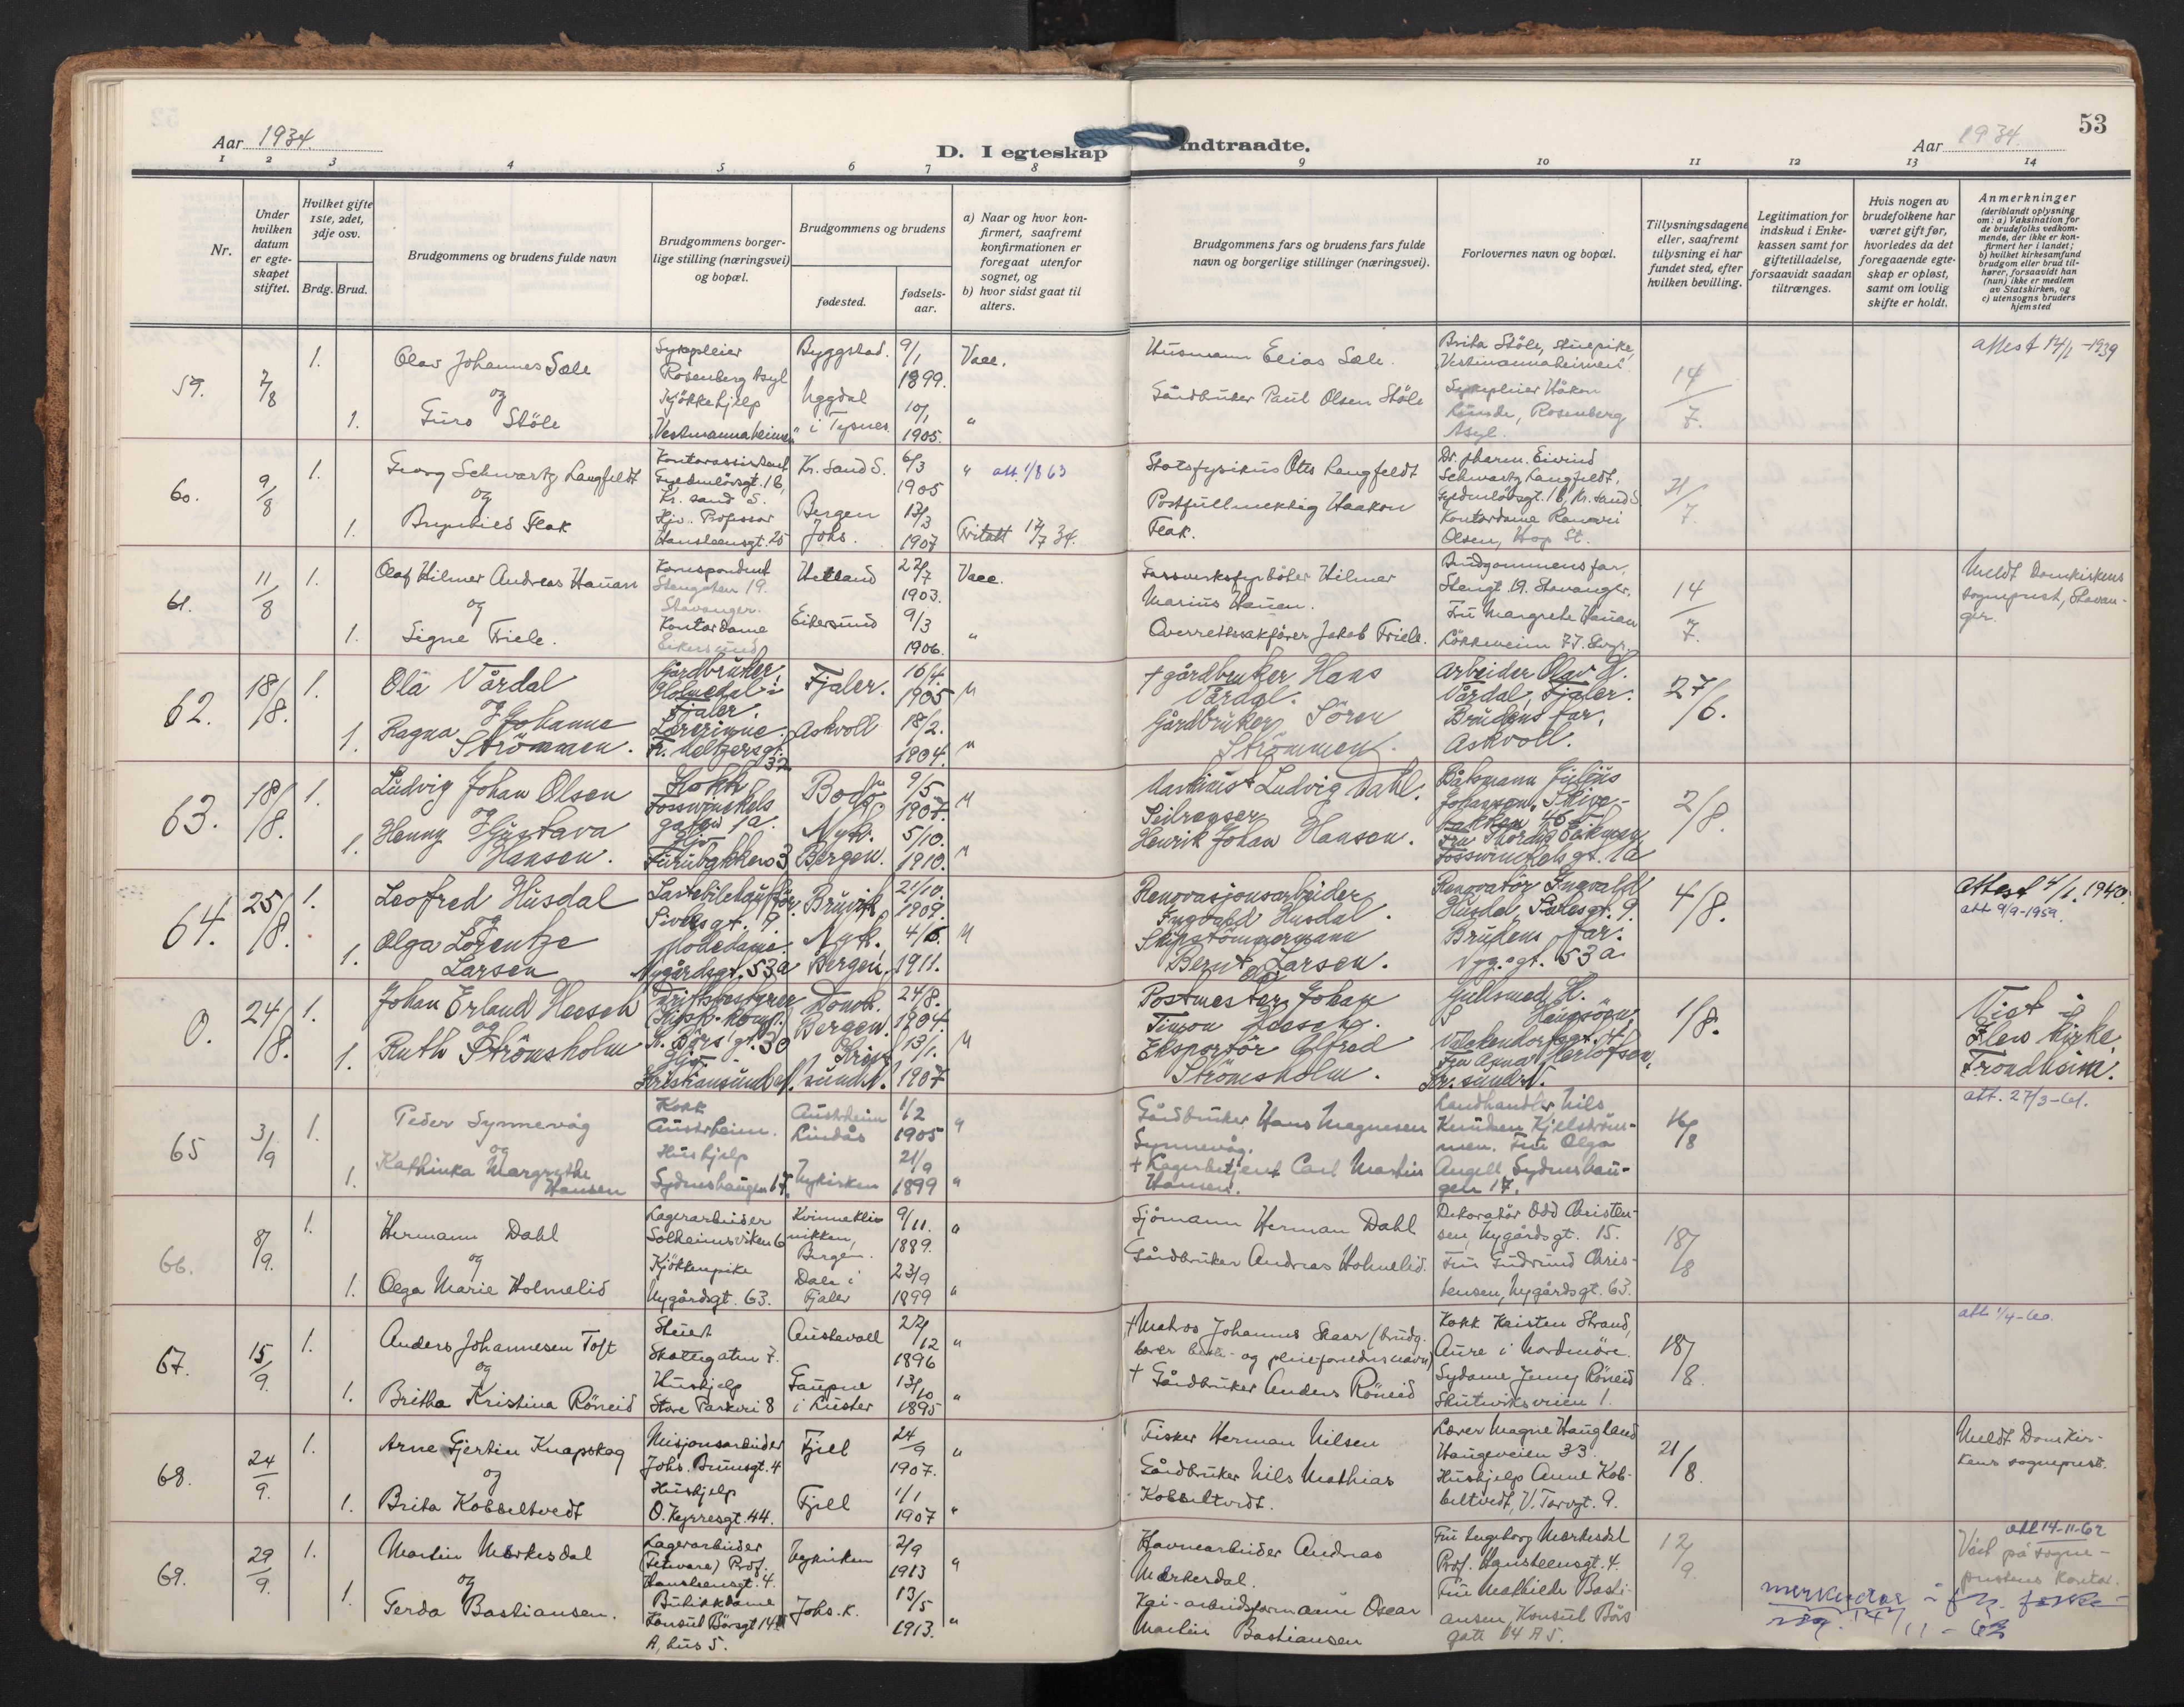 53
Aar 1934.
D. I egteskap indtraadte.
Aar 1934.
1 2 3 4 5 6 7 8 9 10 11 12 13 14
Nr.
Under hvilken datum er egteskapet stiftet.
Hvilket gifte 1ste, 2det, 3dje osv.
Brdg. Brud.
Brudgommens og brudens fulde navn
Brudgommens borgerlige stilling (næringsvei) og bopæl.
Brudgommens og brudens
fødested.
fødsels-aar.
a) Naar og hvor konfirmert, saafremt konfirmationen er foregaat utenfor sognet, og
b) hvor sidst gaat til alters.
Brudgommens fars og brudens fars fulde navn og borgerlige stillinger (næringsvei).
Forlovernes navn og bopæl.
Tillysningsdagene eller, saafremt tillysning ei har fundet sted, efter hvilken bevilling.
Legitimation for indskud i Enkekassen samt for giftetilladelse, forsaavidt saadan tiltrænges.
Hvis nogen av brudefolkene har været gift før, hvorledes da det foregaaende egteskap er opløst, samt om lovlig skifte er holdt.
Anmerkninger
(deriblandt oplysning om: a) Vaksination for de brudefolks vedkommende, der ikke er konfirmert her i landet; b) hvilket kirkesamfund brudgom eller brud tilhører, forsaavidt han (hun) ikke er medlem av Statskirken, og c) utensogns bruders hjemsted
59. 2/8 1. Olav Johannes Sæle
og
1. Guro Støle
Sykepleier
Rosenberg Asyl
Kjøkkehjelp
"Vestmannaheimen"
Byggstad. 9/1 1899.
Uggdal i Tysnes. 10/1 1905.
Vacc.
"
Husmann Elias Sæle.
Gårdbruker Paul Olsen Støle
Brita Støle, stuepike,
"Vestmannaheimen".
Sykepleier Håkon
Rosenberg
Asyl.
14/7.
Attest 14/1-1939
60. 9/8 1. Georg Schwartz Langfeldt
og
1. Brynhild Flak
Kontorassistent
Gyldenløvsgt. 16,
Kr. sand S.
Hjv. Professor
Hansteensgt. 25
Kr. Sand S. 6/3 1905
Bergen Johs. 13/3 1907
" att. 1/8 63
Fritatt 17/7 34.
Statsfysikus Otto Langfeldt
Postfullmektig Haakon
Flak.
Dr. pharm. Eivind
Schwartz Langfeldt,
Gyldenløvsgt. 16, Kr. sand S
Kontordame Ranvei
Olsen, Hop St.
21/7.
61. 11/8 1. Olaf Hilmer Andreas Hauan
og
1. Signe Friele.
Korrespondent
Stengaten 19.
Stavanger.
Kontordame
Eikersund
Hetland 22/7 1903.
Eikersund 9/3 1906.
Vacc.
"
Gassverksfyrbøter Hilmer
Marius Hauan.
Overrettssakfører Jakob Friele.
Brudgommens far,
Stengt. 19. Stavanger.
Fru Margrete Hauan
Løkkeveien 77.
14/7.
Meldt Domkirkens
sogneprest, Stavan-
ger.
62. 18/8. 1. Ola Vårdal
og
1. Ragna Johanne
Strømmen.
Gårdbruker,
Holmedal i
Fjaler.
Lærerinne.
Fr. Meltzersgt.
32
Fjaler. 16/4. 1905
Askvoll 18/2. 1904.
"
"
† gårdbruker Hans
Vårdal.
Gårdbruker Sören
Strømmen.
Arbeider Olav H.
Vårdal, Fjaler.
Brudens far,
Askvoll.
27/6.
63. 18/8. 1. Ludvig Johan Olsen
og
1. Henny Gustava
Hansen.
Kokk
Fosswinckels
gaten 1a.
Hjv.
Furubakken 3
Bodø 9/5 1907.
Nyk. Bergen. 5/10. 1910.
"
"
Maskinist Ludvig Dahl.
Seilregser
Henrik Johan Hansen.
Båtsmann Julius
Johansson, Skive-
bakken 46
Fru Thordis Eikmen,
Fosswinckelsgt. 1a
2/8.
64. 25/8. 1. Leofred Husdal
og
1. Olga Lorentze
Larsen
Lastebilchauffør.
Sivertsgt. 9.
Motedame.
Nygårdsgt. 53a
Bruvik 21/10. 1909.
Nyk. Bergen, 4/6. 1911.
"
Renovasjonsarbeider
Ingvald Husdal.
Skipstømmermann
Bernt Larsen.
Renovatør Ingvald
Husdal, 9.
Brudens far.
Nyg.gt. 53a
4/8.
Attest 4/1. 1940.
att 9/9-1959.
0. 24/8. 1. Johan Erland Hoesch
og
1. Ruth Strömsholm
Driftsbestyrer
K. Börs gt. 30
Hjv.
Kristiansund N.
Domk. Bergen. 24/8. 1904.
Kristiansund N. 13/1. 1907
"
Postmester Johan
Timson Hoesch.
Eksportör Alfred
Strömsholm.
Gullsmed H.
Fru Anna Herlofsen,
Kr. sund N.
1/8.
Viet i
Ilen kirke,
Trondheim.
65 3/9 1. Peder Synnevåg
og
1. Kathinka Margrethe
Hansen
Kokk
Austrheim.
Hushjelp
Sydneshaugen 17.
Austrheim Lindås 1/2 1905
Nykirken 21/9 1899
"
"
Gårdbruker Hans Magnesen
Synnevåg.
† Lagerbetjent Carl Martin
Hansen.
Landhandler Nils
Knudsen Kjelström-
men. Fru Olga
Angell, Sydneshau-
gen 17.
16/8
att. 27/3-61.
66. 8/9. 1. Hermann Dahl
og
1. Olga Marie Holmelid
Lagerarbeider
Solheimsviken 6
Kjøkkenpike
Nygårdsgt. 63.
Kvinneklinikken, Bergen. 9/11. 1889.
Dale i Fjaler 23/9 1899
"
"
Sjømann Herman Dahl
Gårdbruker Andreas Holmelid.
Dekoratør Odd Christen-
sen, Nygårdsgt. 15.
Fru Gudrund Chris-
tensen, Nygårdsgt. 63.
18/8
67. 15/9. 1. Anders Johannesen Toft
og
1. Britha Kristina Röneid
Stuert
Skottegaten 7.
Hushjelp
Store Parkvei 8
Austevoll 22/12 1896
Gaupne i Luster 13/10 1895
"
"
† Matros Johannes Skaar (brudg.
bærer - og pleieforeldres navn)
† Gårdbruker Anders Röneid
Kokk Kristen Strand,
Aure i Nordmøre.
Sydame Jenny Röneid
Skuteviksveien 1.
18/8.
att 1/4-60.
68. 24/9. 1. Arne Gjertin Knapskog
og
1. Brita Kobbeltvedt
Misjonsarbeider
Johs. Brunsgt. 4
Hushjelp
O. Kyrresgt. 44.
Fjell 24/9 1907.
Fjell 1/1 1907
"
"
Fisker Herman Nilsen
Gårdbruker Nils Mathias
Kobbeltvedt.
Lærer Magne Haugland
Haugeveien 33.
Hushjelp Anne Kob-
beltvedt, V. Torvgt. 9.
21/8.
Meldt Domkir-
kens sogneprest.
69. 29/9. 1. Martin Markesdal
og
1. Gerda Bastiansen.
Lagerarbeider
(Fetevare) Prof.
Hansteensgt. 4.
Butikkdame
Konsul Børsgt 14
A, hus 5.
Nykirken 2/9 1913
Johs. K. 13/5 1913.
"
"
Havnearbeider Andreas
Markesdal.
Kai-arbeidsformann Oscar
Martin Bastiansen
Fru Ingeborg Markesdal
Prof. Hansteensgt. 4.
Fru Mathilde Basti-
ansen, Konsul Børs
gate 14 A 5.
12/9
att 14-11-62
Viet på sogne-
prestens kontor.